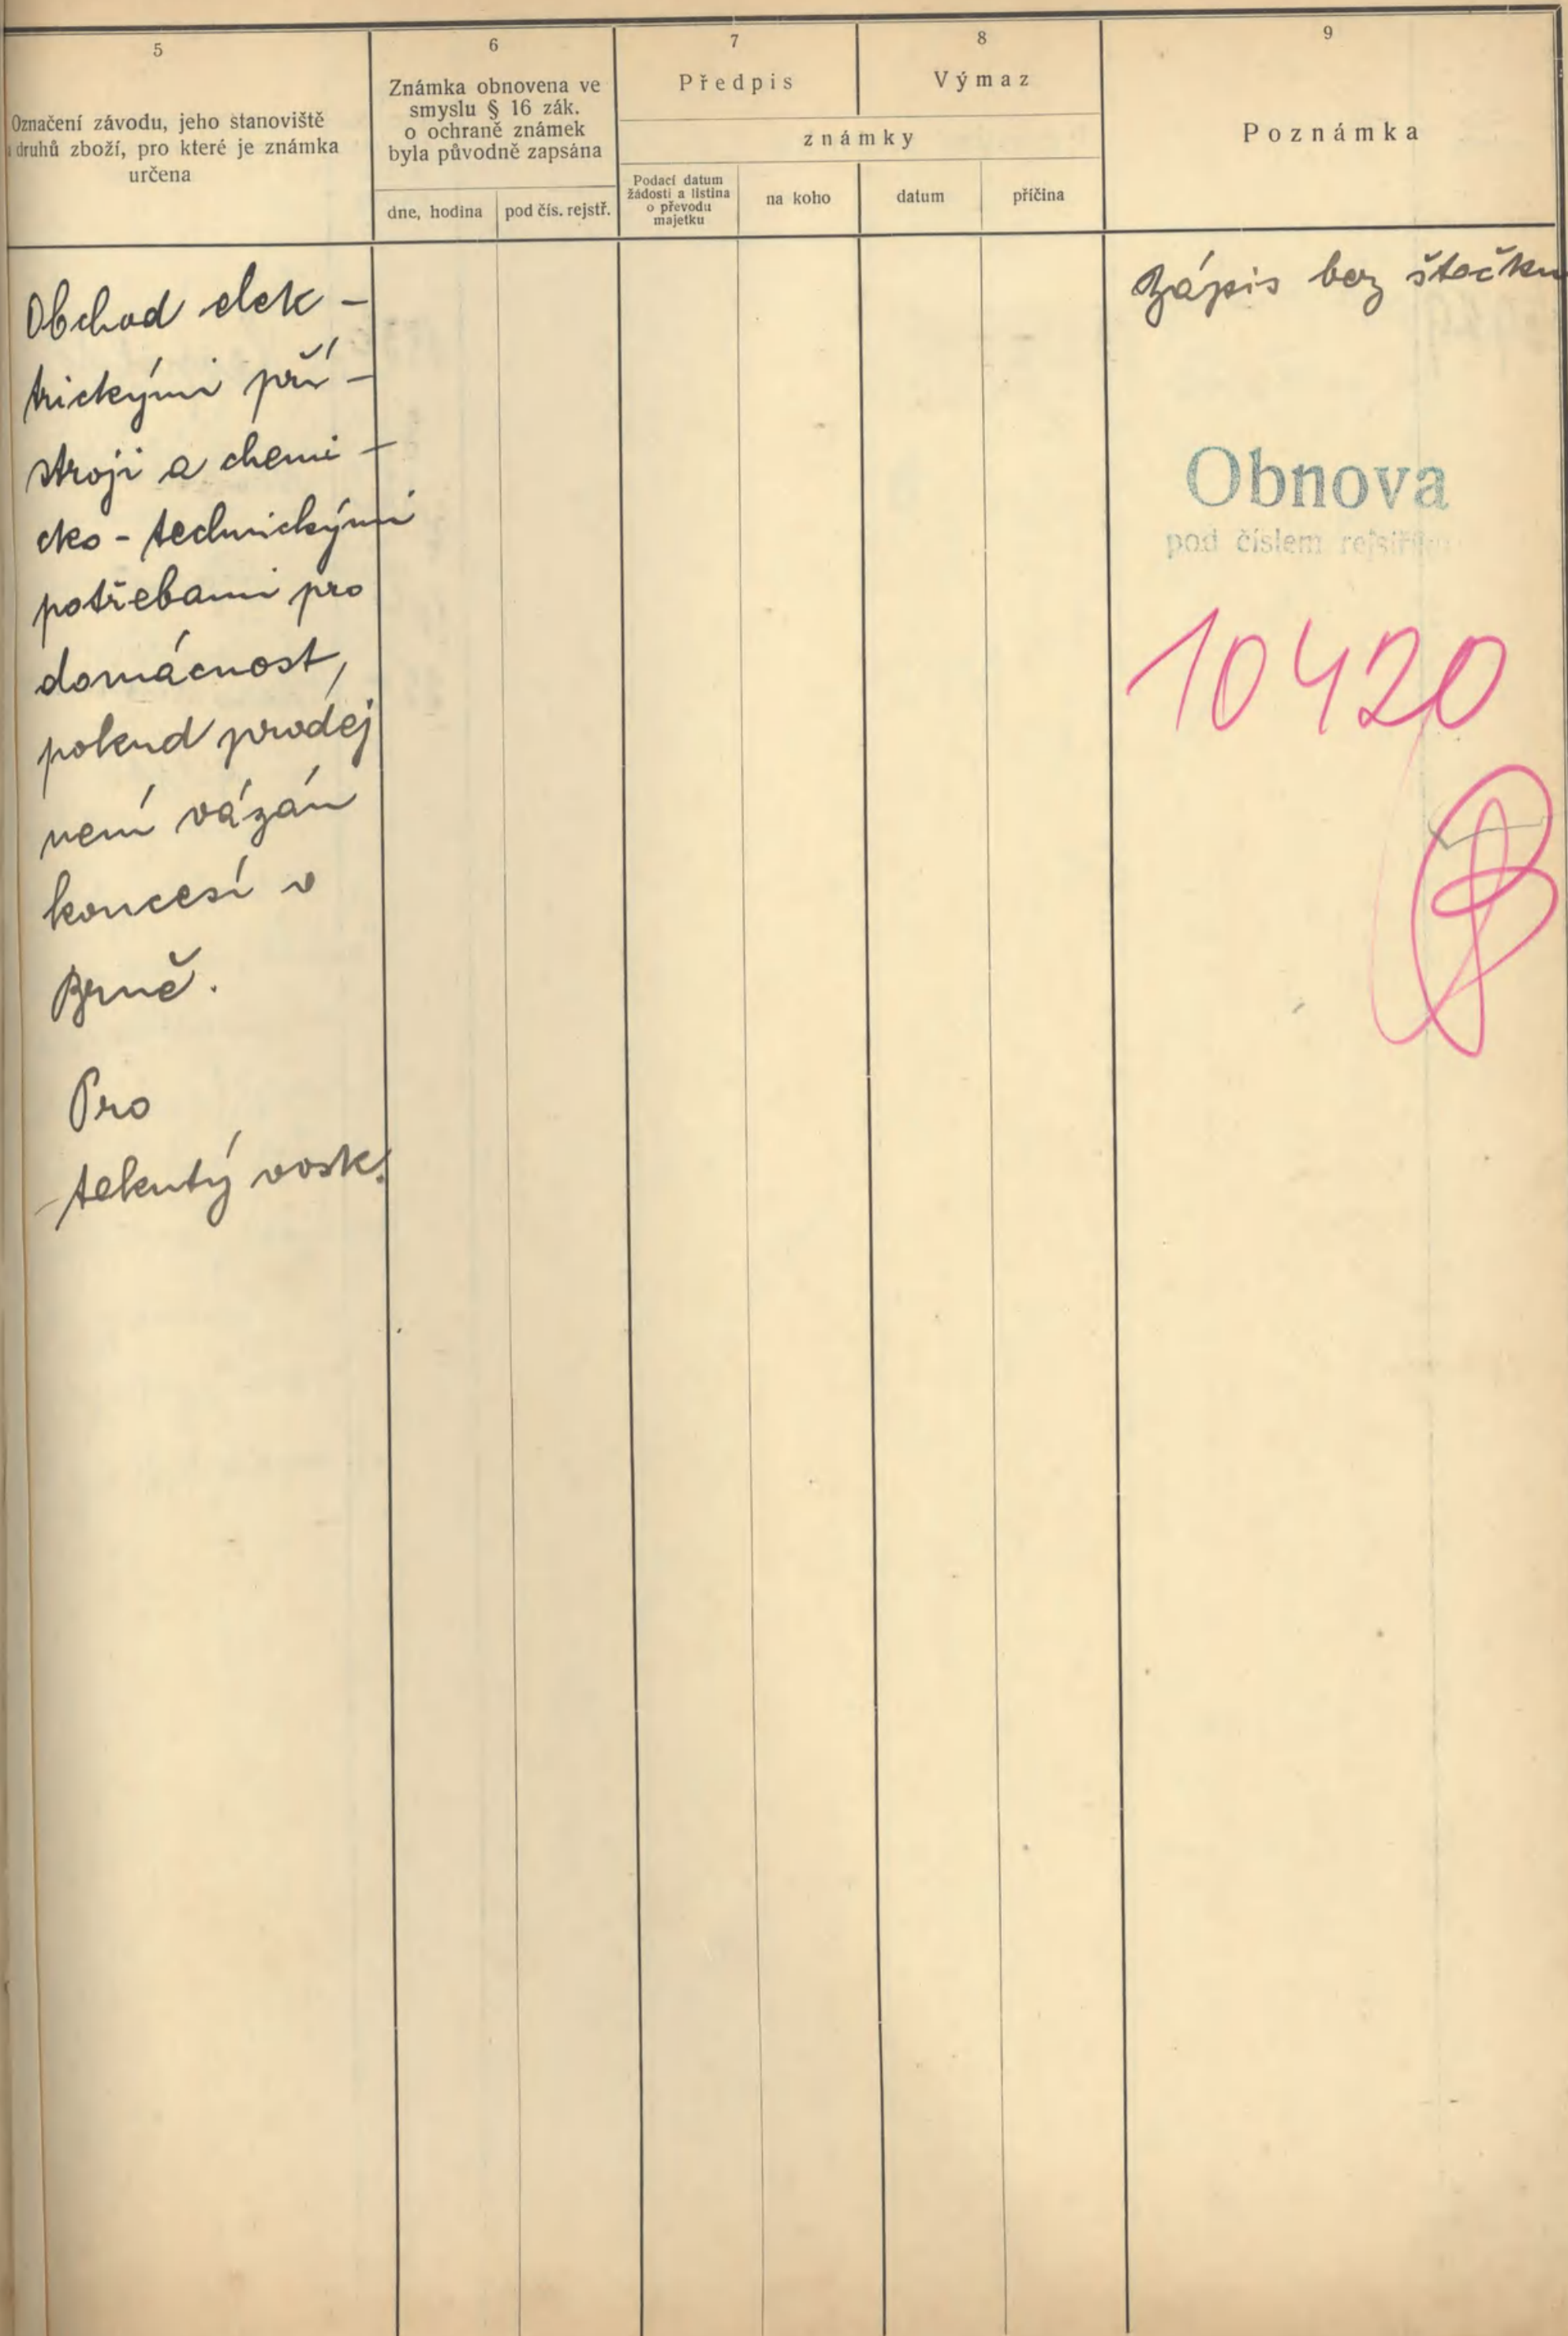 5
Označení závodu, jeho stanoviště
druhů zboží, pro které je známka
určena
6
Známka obnovena ve
smyslu § 16 zák.
o ochraně známek
byla původně zapsána
dne, hodina
pod čís. rejstř.
7
Předpis
8
Výmaz
známky
Podací datum
žádosti a listina
o převodu
majetku
na koho
datum
příčina
9
Poznámka
Obchod elek-
trickými pří-
stroji a chemi-
cko-technickými
potřebami pro
domácnost,
pokud prodej
není vázán
koncesí v
Brně.
Pro
tekutý vosk.
Zápis bez štočku
Obnova
pod číslem
10420